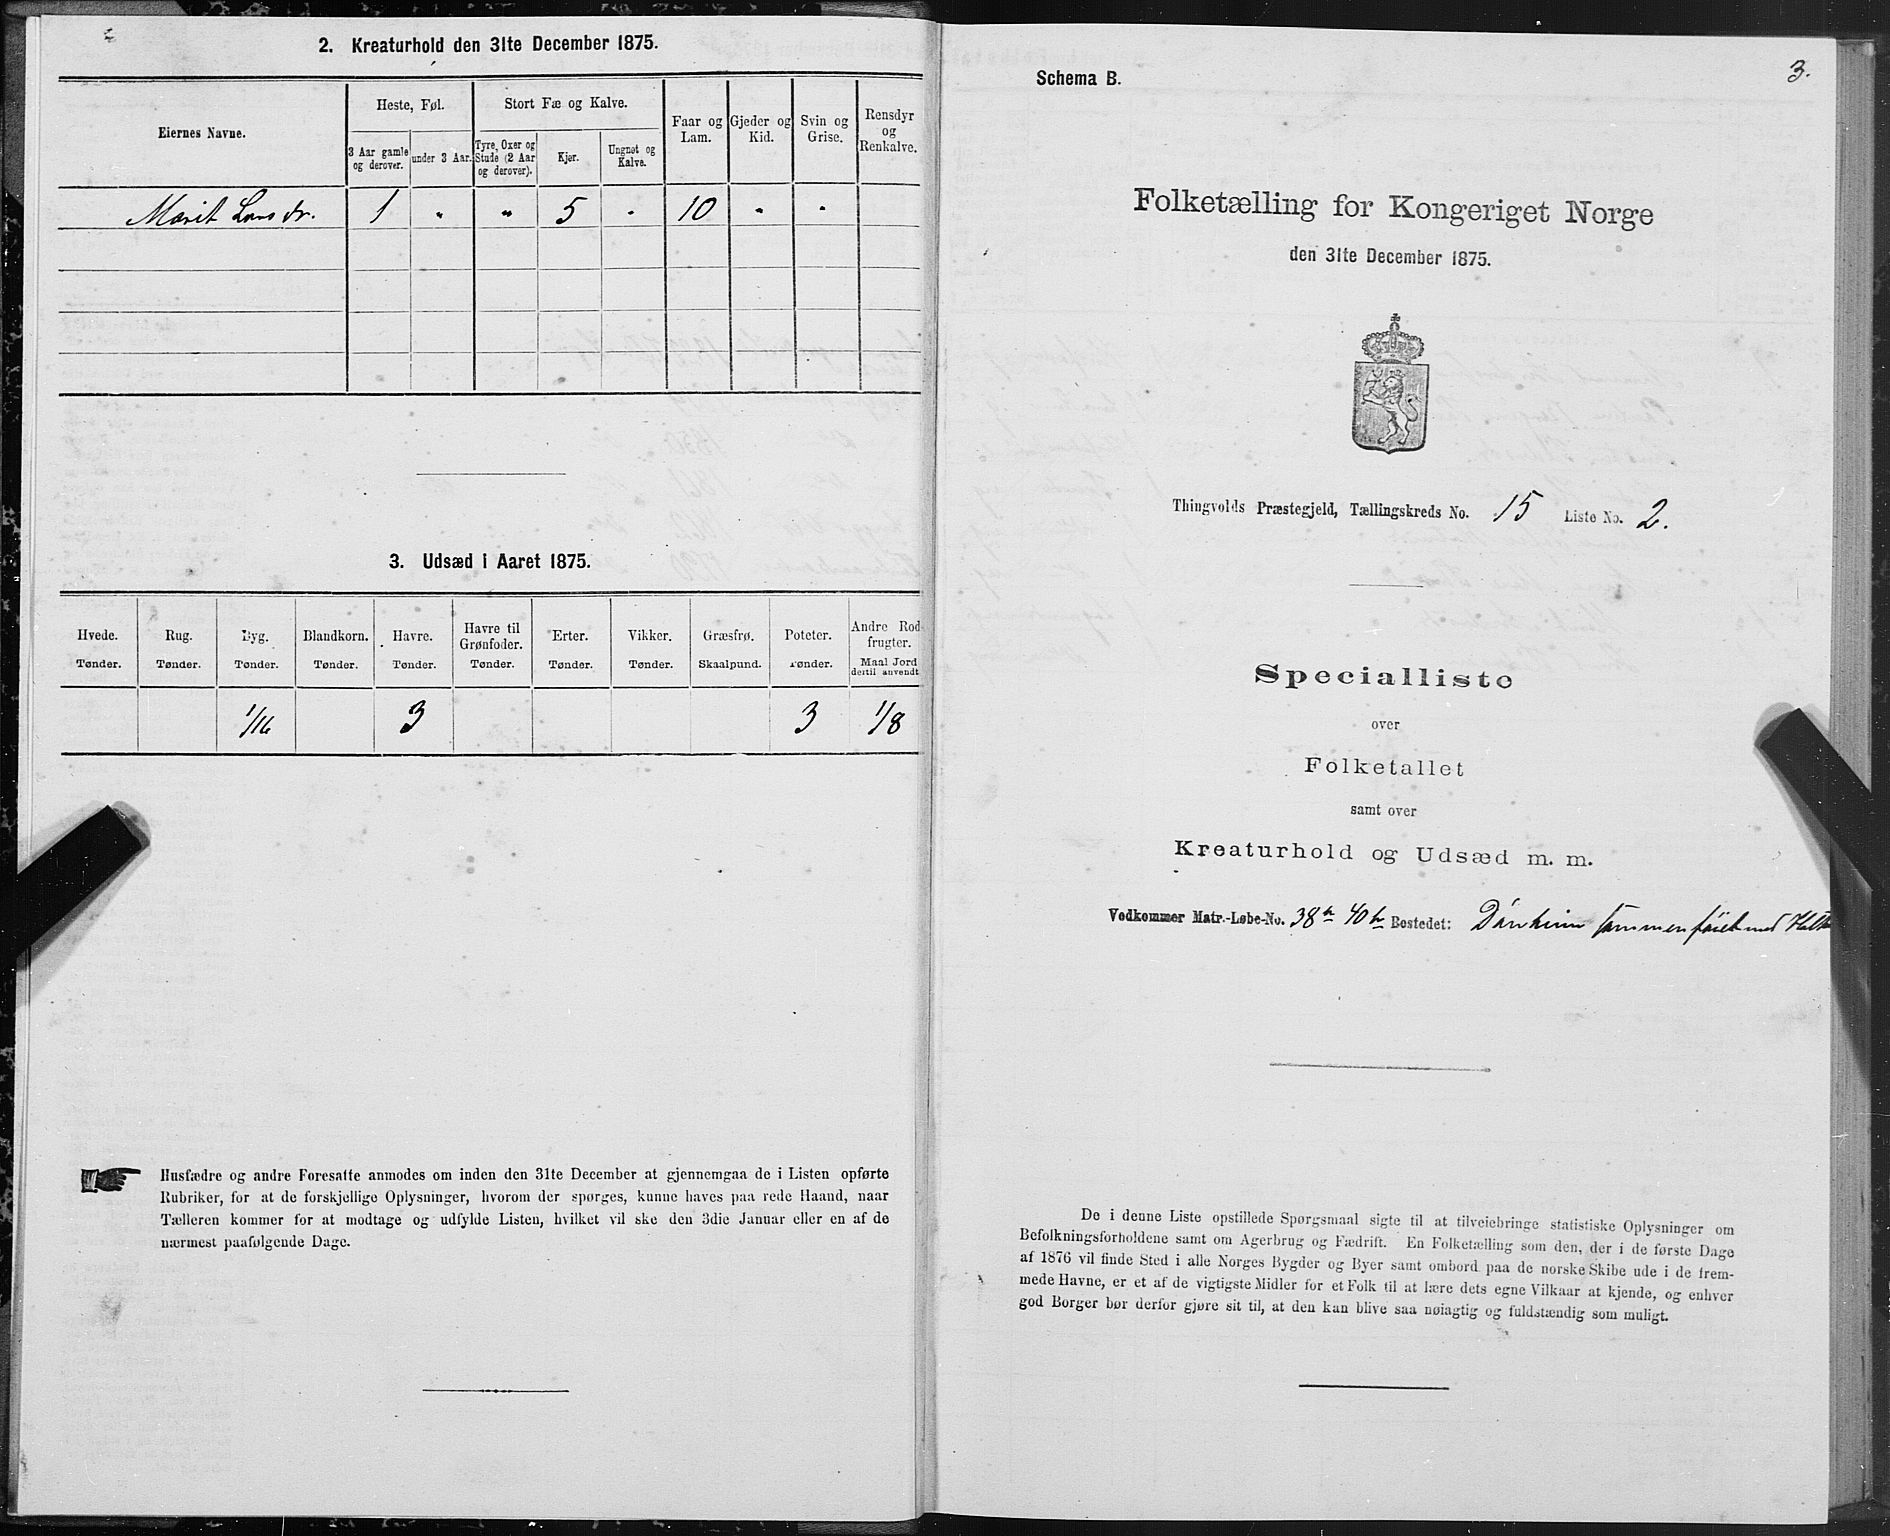 2. Kreaturhold den 31te December 1875.
Eiernes Navne.
Heste, Føl.
Stort Fæ og Kalve.
Faar og Lam.
Gjeder og Kid.
Svin og Grise.
Rensdyr og Renkalve.
3 Aar gamle og derover.
under 3 Aar.
Tyre, Oxer og Stude (2 Aar og derover).
Kjør.
Ungnøt og Kalve.
Marit Larsdr. 1 " " 5 " 10 " "
3. Udsæd i Aaret 1875.
Hvede. Rug. Byg. Blandkorn. Havre. Havre til Grønfoder. Erter. Vikker. Græsfrø. Poteter. Andre Rodfrugter.
Tønder. Tønder. Tønder. Tønder. Tønder. Tønder. Tønder. Tønder. Skaalpund. Tønder. Maal Jord dertil anvendt.
1/16 3 3 1/8
Husfædre og andre Foresatte anmodes om inden den 31te December at gjennemgaa de i Listen opførte
Rubriker, for at de forskjellige Oplysninger, hvorom der spørges, kunne haves paa rede Haand, naar
Tælleren kommer for at modtage og udfylde Listen, hvilket vil ske den 3die Januar eller en af de
nærmest paafølgende Dage.
3.
Schema B.
Folketælling for Kongeriget Norge
den 31te December 1875.
Thingvolds Præstegjeld, Tællingskreds No. 15 Liste No. 2.
Specialliste
over
Folketallet
samt over
Kreaturhold og Udsæd m. m.
Vedkommer Matr.-Løbe-No. 38 40 Bostedet: sammenføiet med
De i denne Liste opstillede Spørgsmaal sigte til at tilveiebringe statistiske Oplysninger om
Befolkningsforholdene samt om Agerbrug og Fædrift. En Folketælling som den, der i de første Dage
af 1876 vil finde Sted i alle Norges Bygder og Byer samt ombord paa de norske Skibe ude i de frem-
mede Havne, er et af de vigtigste Midler for et Folk til at lære dets egne Vilkaar at kjende, og enhver
god Borger bør derfor gjøre sit til, at den kan blive saa nøiagtig og fuldstændig som muligt.